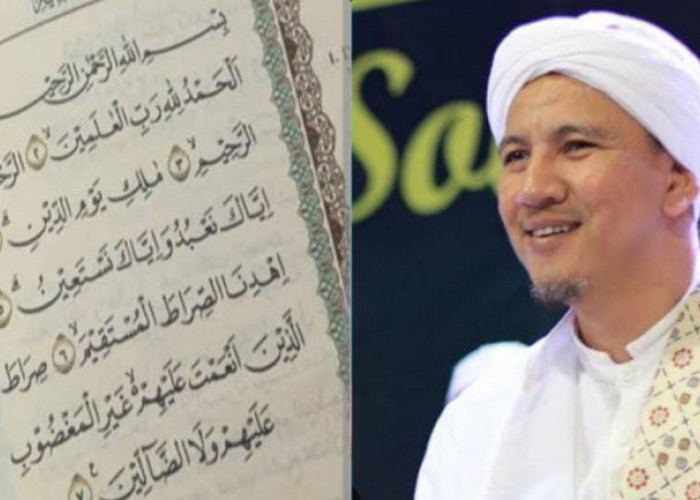 بِسْمِ اللّٰهِ الرَّحْمٰنِ الرَّحِيْمِ
اَلْحَمْدُ لِلّٰهِ رَبِّ الْعٰلَمِيْنَۙ ۝٢
الرَّحِيْمِۙ ۝٣ مٰلِكِ يَوْمِ الدِّيْنِۗ
اِيَّاكَ نَعْبُدُ وَاِيَّاكَ نَسْتَعِيْنُۗ ۝٥
اِهْدِنَا الصِّرَاطَ الْمُسْتَقِيْمَۙ ۝٦ صِرَاطَ
الَّذِيْنَ اَنْعَمْتَ عَلَيْهِمْ ەۙ غَيْرِ الْمَغْضُوْبِ
عَلَيْهِمْ وَلَا الضَّآلِّيْنَ ۝٧
So